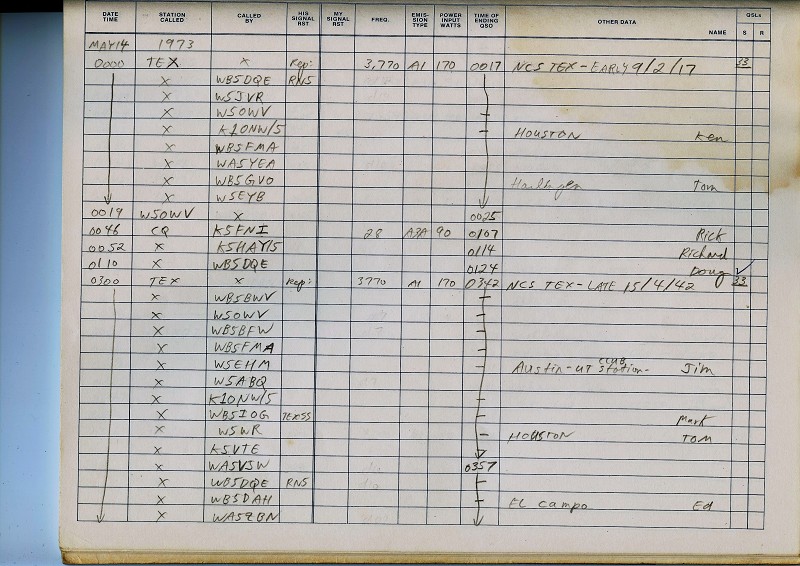 DATE TIME STATION CALLED CALLED BY HIS SIGNAL RST MY SIGNAL RST FREQ. EMIS-SION TYPE POWER INPUT WATTS TIME OF ENDING QSO OTHER DATA NAME QSLs S R
MAY 14 1973
0000 TEX X Rep: 3,770 A1 170 0017 NCS TEX - EARLY 9/2/17 33
X WB5DQE RN5
X W5JVR
X W5OWV -
X K1ONW/5 - HOUSTON Ken
X WB5FMA
X WA5YEA
X WB5GVO Harlingen Tom
X W5EYB
0019 W5OWV X 0025
0046 CQ K5FNI 28 A3A 90 0107 Rick
0052 X K5HAY/5 0114 Richard
0110 X WB5DQE 0124 Doug ✓
0300 TEX X Rep: 3770 A1 170 0342 NCS TEX - LATE 15/4/42 33
X WB5BWV -
X W5OWV -
X WB5BFW -
X WB5FMA -
X W5EHM - Austin - UT club station - Jim
X W5ABQ -
X K1ONW/5 -
X WB5IOG TEX55 - Mark
X W5WR - HOUSTON TOM
X K5VTE
X WA5VSW 0357
X WB5DQE RN5 -
X WB5DAH - EL campo Ed
X WA5ZBN